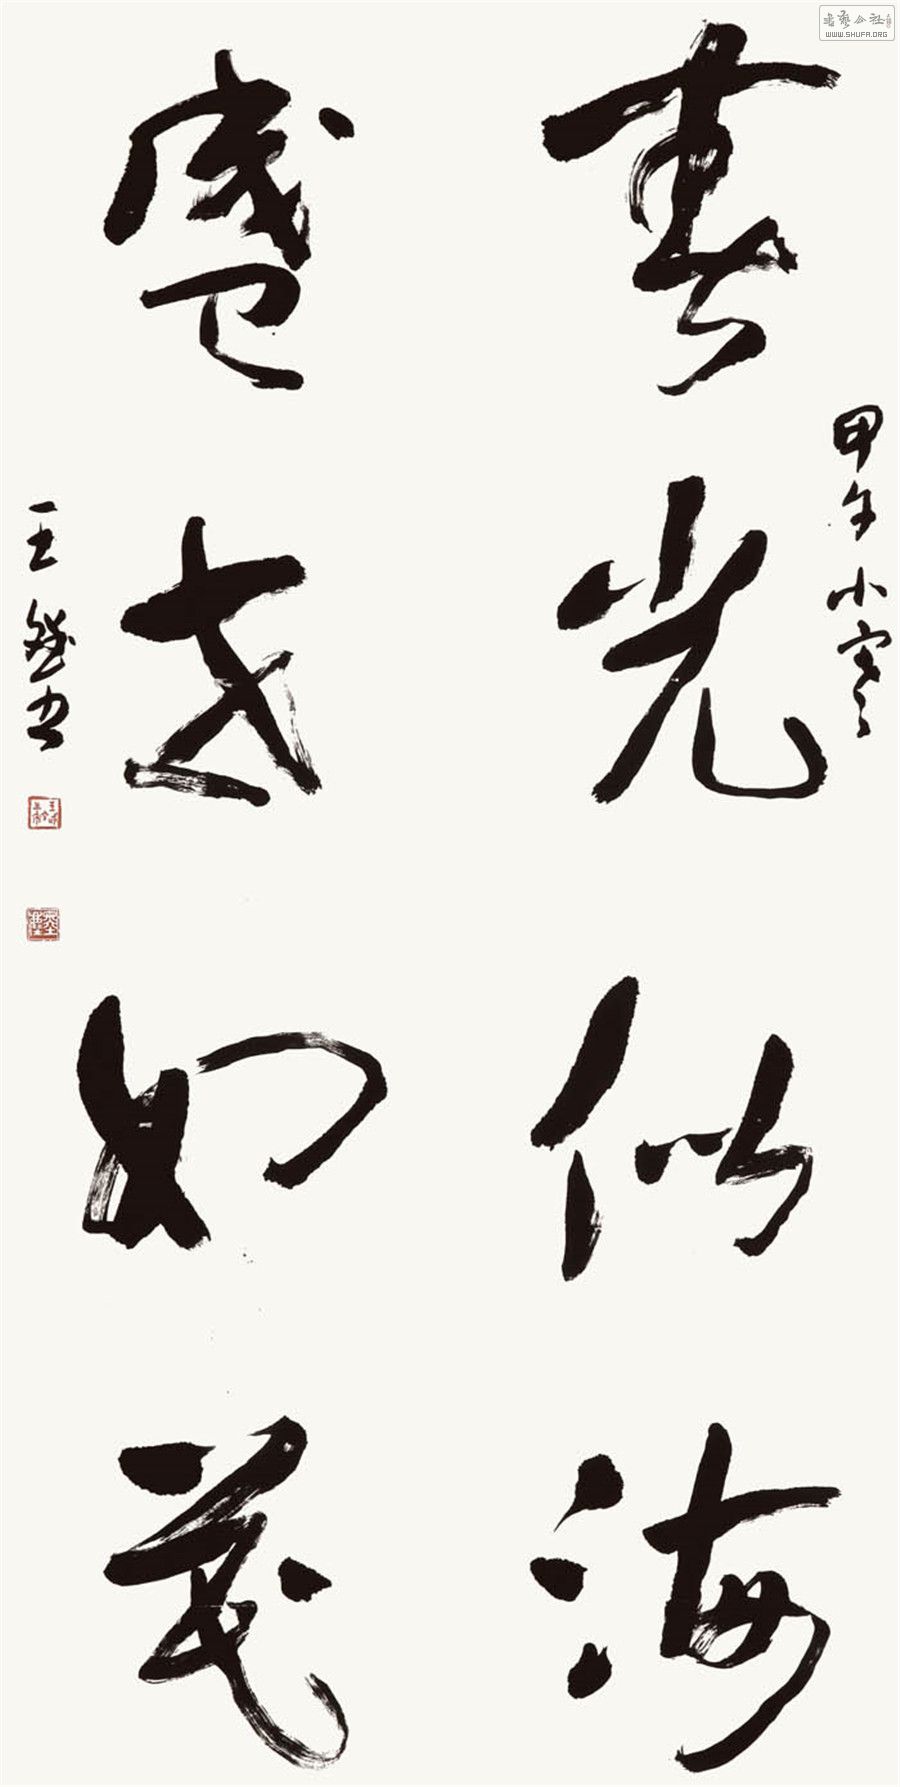 春光似海
盛世如花
甲午小寒
王 书
书艺公社
WWW.SHUFA.ORG